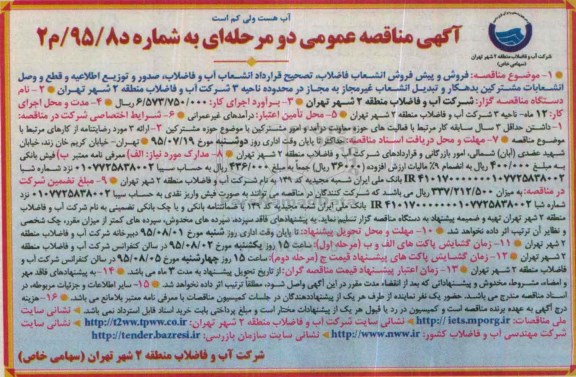 آب هست ولی کم است
آگهی مناقصه عمومی دو مرحله‌ای به شماره د۲/۹۵/۸م
شرکت آب و فاضلاب منطقه ۲ شهر تهران
(سهامی خاص)
۱- موضوع مناقصه: فروش و پیش فروش انشعاب فاضلاب، تصحیح قرارداد انشعاب آب و فاضلاب، صدور و توزیع اطلاعیه و قطع و وصل
انشعابات مشترکین بدهکار و تبدیل انشعاب غیرمجاز به مجاز در محدوده ناحیه ۳ شرکت آب و فاضلاب منطقه ۲ شهر تهران ۲- نام
دستگاه مناقصه گزار: شرکت آب و فاضلاب منطقه ۲ شهر تهران ۳- برآورد اجرای کار: ۶/۵۷۳/۷۵۰/۰۰۰ ریال ۴- مدت و محل اجرای
کار: ۱۲ ماه- ناحیه ۳ شرکت آب و فاضلاب منطقه ۲ شهر تهران ۵- محل تأمین اعتبار: درآمدهای غیرعمرانی ۶- شرایط اختصاصی شرکت در مناقصه:
۱- داشتن حداقل ۳ سال سابقه کار مرتبط با فعالیت های حوزه معاونت درآمد و امور مشترکین با موضوع حوزه مشترکین ۲- ارائه ۲ مورد رضایتنامه از کارهای مرتبط با
موضوع مناقصه ۷- مهلت و محل دریافت اسناد مناقصه: حداکثر تا پایان وقت اداری روز دوشنبه مورخ ۹۵/۰۷/۱۹ تهران- خیابان کریم خان زند، خیابان
شهید عضدی (آبان) شمالی، امور بازرگانی و قراردادهای شرکت آب و فاضلاب منطقه ۲ شهر تهران ۸- مدارک مورد نیاز: الف) معرفی نامه معتبر ب) فیش بانکی
به مبلغ ۴۰۰/۰۰۰ ریال به انضمام ۹٪ مالیات ارزش افزوده (۳۶/۰۰۰ ریال) جمعاً به مبلغ ۴۳۶/۰۰۰ ریال به حساب سیبا ۰۱۰۷۷۲۵۸۳۸۰۰۲ نزد شماره شبا
IR ۴۱۰۱۷۰۰۰۰۰۰۰۱۰۷۷۲۵۸۳۸۰۰۲ بانک ملی ایران شعبه تجدید کد ۱۳۹ به نام شرکت آب و فاضلاب منطقه ۲ شهر تهران ۹- مبلغ تضمین شرکت
در مناقصه: به میزان ۳۳۷/۲۱۲/۵۰۰ ریال می باشد که شرکت کنندگان در مناقصه می توانند به صورت فیش واریز نقدی به حساب سیبا ۰۱۰۷۷۲۵۸۳۸۰۰۲ نزد
شماره شبا IR ۴۱۰۱۷۰۰۰۰۰۰۰۱۰۷۷۲۵۸۳۸۰۰۲ بانک ملی ایران شعبه تجدید کد ۱۳۹ یا ضمانتنامه بانکی و یا چک بانکی تضمینی به نام شرکت آب و فاضلاب
منطقه ۲ شهر تهران تهیه و ضمیمه پیشنهاد به دستگاه مناقصه گزار تسلیم نماید. به پیشنهادهای فاقد سپرده، سپرده های مخدوش، سپرده های کمتر از میزان مقرر، چک شخصی
و نظایر آن ترتیب اثر داده نخواهد شد. ۱۰- مهلت و محل تحویل پیشنهاد: تا پایان وقت اداری روز شنبه مورخ ۹۵/۰۸/۰۱ دبیرخانه شرکت آب و فاضلاب منطقه
۲ شهر تهران ۱۱- زمان گشایش پاکت های الف و ب (مرحله اول): ساعت ۱۵ روز یکشنبه مورخ ۹۵/۰۸/۰۲ در سالن کنفرانس شرکت آب و فاضلاب منطقه
۲ شهر تهران ۱۲- زمان گشایش پاکت های پیشنهاد قیمت ج (مرحله دوم): ساعت ۱۵ روز چهارشنبه مورخ ۹۵/۰۸/۰۵ در سالن کنفرانس شرکت آب و
فاضلاب منطقه ۲ شهر تهران ۱۳- زمان اعتبار پیشنهاد قیمت مناقصه گران: از تاریخ تحویل پیشنهاد به مدت ۳ ماه می باشد ۱۴- به پیشنهادهای فاقد مهر
و امضاء، مشروط، مخدوش و پیشنهاداتی که بعد از انقضاء مدت مقرر در این آگهی واصل شود، مطلقاً ترتیب اثر داده نخواهد شد. ۱۵- سایر اطلاعات و جزئیات مربوطه، در
اسناد مناقصه مندرج می باشد. حضور یک نفر نماینده از طرف هر یک از پیشنهاددهندگان در جلسات کمیسیون مناقصات با معرفی نامه معتبر بلامانع می باشد. ۱۶- هزینه
درج آگهی به عهده برنده مناقصه است و کمیسیون در رد یا قبول هر یک از پیشنهادات مختار است و مبلغ پرداختی بابت خرید اسناد قابل استرداد نمی باشد. نشانی سایت
ملی مناقصات: http://iets.mporg.ir نشانی سایت شرکت آب و فاضلاب منطقه ۲ شهر تهران: http://t2ww.tpww.co.ir نشانی سایت
شرکت مهندسی آب و فاضلاب کشور: http://www.nww.ir نشانی سایت سازمان بازرسی: http://tender.bazresi.ir
شرکت آب و فاضلاب منطقه ۲ شهر تهران (سهامی خاص)